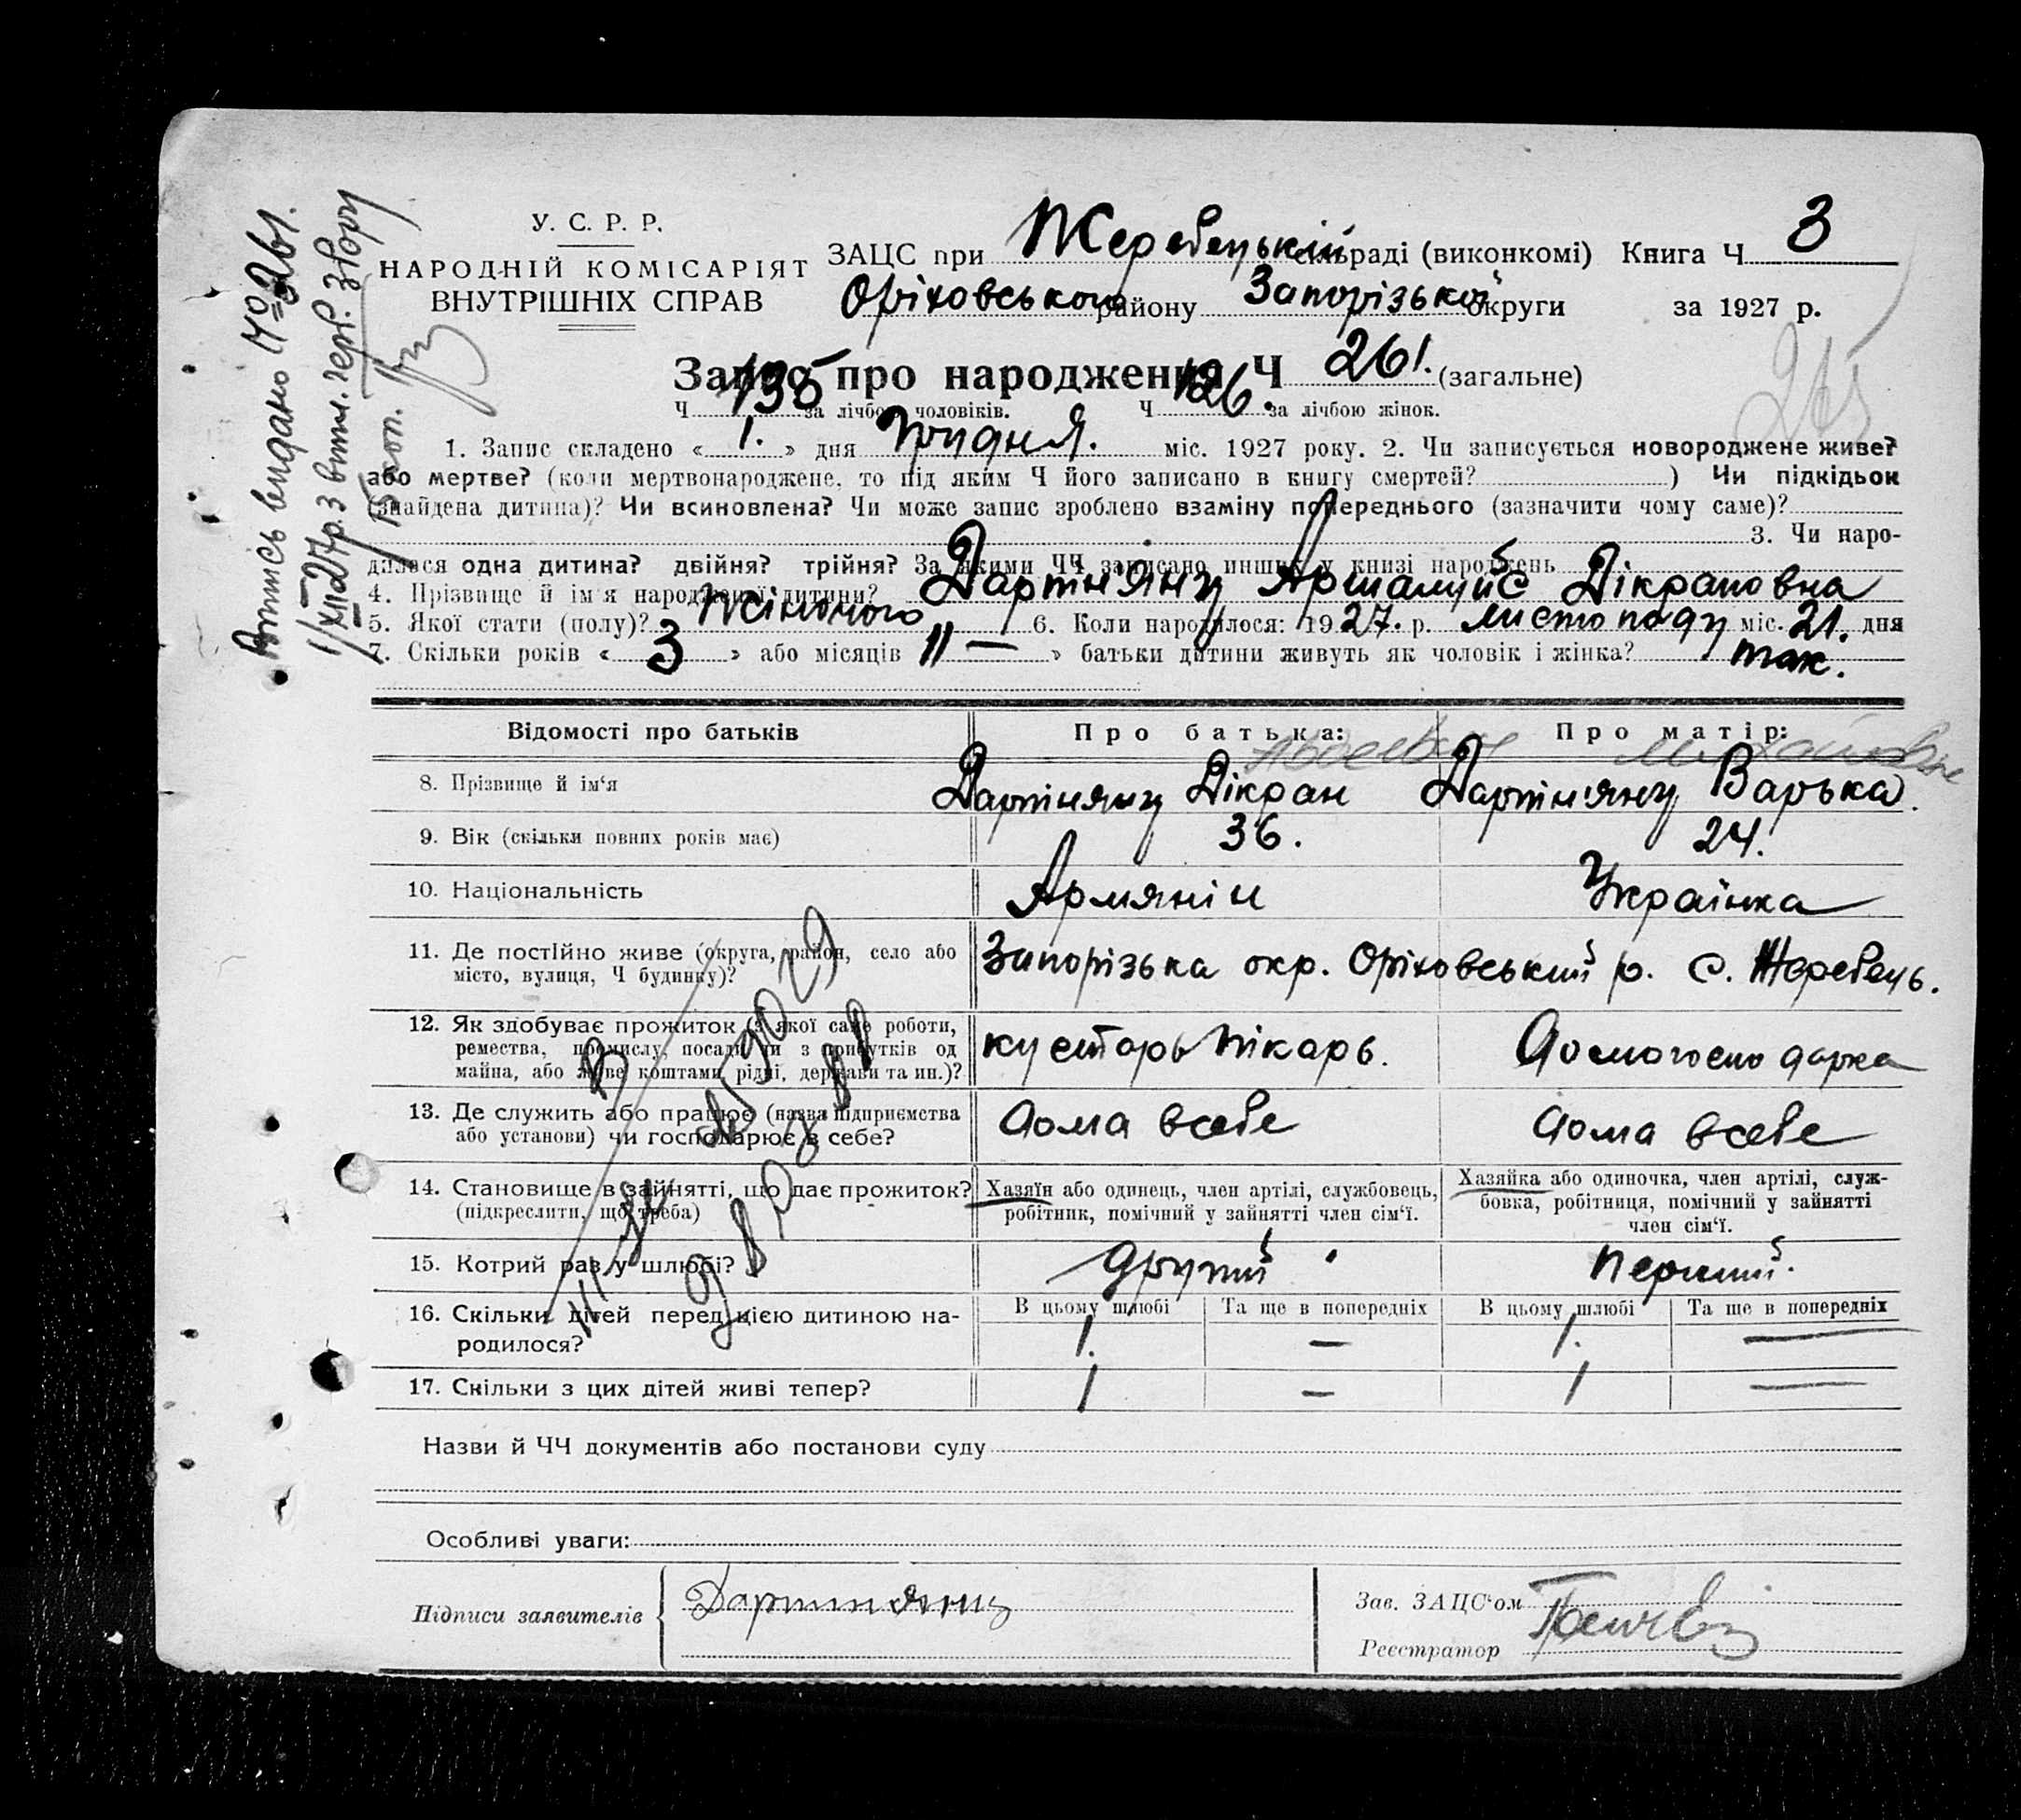 У. С. Р. Р.
НАРОДНІЙ КОМІСАРІЯТ
ВНУТРІШНІХ СПРАВ
ЗАЦС при Жеребецькій сільраді (виконкомі) Книга Ч 3
Оріховського району Запорізької округи за 1927 р.
Запис про народження Ч 261. (загальне)
Ч 135 за лічбою чоловіків. Ч 126. за лічбою жінок.
265
1. Запис складено « 1. » дня Грудня. міс. 1927 року. 2. Чи записується новороджене живе?
або мертве? (коли мертвонароджене, то під яким Ч його записано в книгу смертей? ) Чи підкідьок
(знайдена дитина)? Чи всиновлена? Чи може запис зроблено взаміну попереднього (зазначити чому саме)?
3. Чи наро-
дилася одна дитина? двійня? трійня? За якими ЧЧ записано инших у книзі народжень
4. Прізвище й ім'я народженої дитини? Дартінянц Аршалуйс Дікрановна
5. Якої стати (полу)? Жіночого 6. Коли народилося: 1927. р. листопаду міс. 21. дня
7. Скільки років « 3 » або місяців " — » батьки дитини живуть як чоловік і жінка? так.
Відомості про батьків Про батька: Про матір:
8. Прізвище й ім'я Дартінянц Дікран Дартінянц Варька
9. Вік (скільки повних років має) 36. 24.
10. Національність Армянін Українка
11. Де постійно живе (округа, район, село або
місто, вулиця, Ч будинку)? Запорізька окр. Оріховський р. с. Жеребець.
12. Як здобуває прожиток (з якої саме роботи,
ремества, промислу, посади чи з прибутків од
майна, або живе коштами рідні, держави та ин.)? кустарь пікарь. Домогосподарка
13. Де служить або працює (назва підприємства
або установи) чи господарює в себе? дома всебе дома всебе
14. Становище в зайнятті, що дає прожиток?
(підкреслити, що треба)
Хазяїн або одинець, член артілі, службовець,
робітник, помічний у зайнятті член сім'ї.
Хазяйка або одиночка, член артілі, служ-
бовка, робітниця, помічний у зайнятті
член сім'ї.
15. Котрий раз у шлюбі? другий перший.
16. Скільки дітей перед цією дитиною на-
родилося?
В цьому шлюбі Та ще в попередніх В цьому шлюбі Та ще в попередніх
1. — 1. —
17. Скільки з цих дітей живі тепер? 1 — 1 —
Назви й ЧЧ документів або постанови суду
Особливі уваги:
Підписи заявителів Дартинянц
Зав. ЗАЦС'ом
Реєстратор
Випись видано Ч° 261.